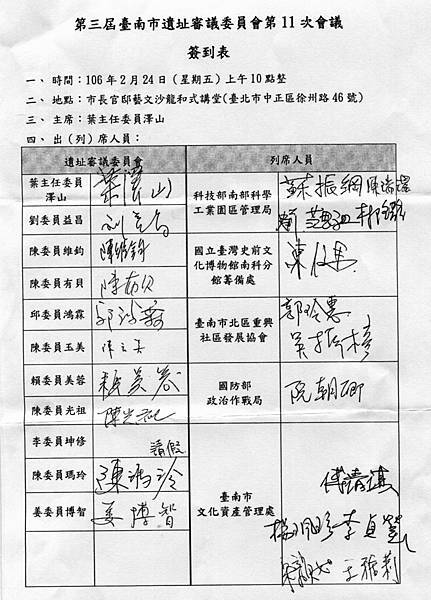 第三屆臺南市遺址審議委員會第11次會議
簽到表
一、時間：106年2月24日(星期五)上午10點整
二、地點：市長官邸藝文沙龍和式講堂(臺北市中正區徐州路46號)
三、主席：葉主任委員澤山
四、出(列)席人員：
遺址審議委員會 列席人員
葉主任委員澤山 葉澤山
劉委員益昌 刘益昌
陳委員維鈞 陳維鈞
陳委員有貝 陳有貝
邱委員鴻霖 邱鴻霖
陳委員玉美 陳玉美
賴委員美蓉 賴美蓉
陳委員光祖 陳光祖
李委員坤修 請假
陳委員瑪玲 陳瑪玲
姜委員博智 姜博智
科技部南部科學工業園區管理局 蘇振綱 陳瑞
國立臺灣史前文化博物館南科分館籌備處
臺南市北區重興社區發展協會 郭玲惠
吳
國防部政治作戰局 阮朝卿
臺南市文化資產管理處 傅清琪
李貞瑩
王雅莉